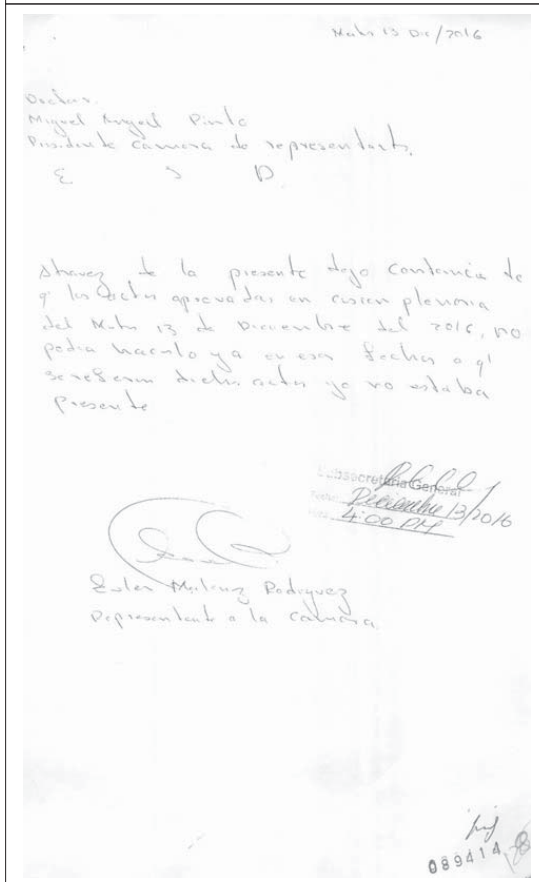 Mates 13 Dic/2016
Doctor.
Miguel Angel Pinto
Presidente camara de representants.
E S D
Atravez de la presente dejo constancia de
q' las actas aprovadas en cesion plenaria
del Mates 13 de Diciembre del 2016, no
podia hacerlo ya en esa fecha a q'
se refieren dichas actas yo no estaba
Presente
Subsecretaria General
Diciembre 13/2016
4:00 PM
Rodriguez
Representante a la camara.
089414